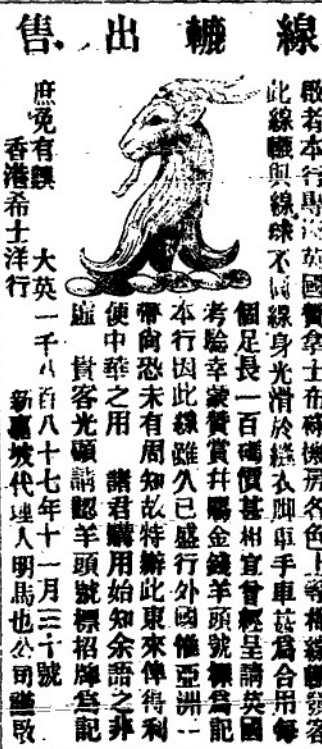 線轆出售
啟者本行專沽英國賢拿士布蔴機房各色上等棉線轆發客
此線轆與線球不同線身光滑於縫衣脚車手車甚爲合用每
個足長一百碼價甚相宜曾經呈請英國
考驗幸蒙賛賞并賜金錢羊頭號標爲記
本行因此線雖久已盛行外國惟亞洲一
帶尚恐未有周知故特辦此東來俾得利
便中華之用 諸君購用始知余語之非
虛 貴客光顧請認羊頭號標招牌爲記
庶免有誤 大英一千八百八十七年十一月三十號
香港希士洋行 新嘉坡代理人明馬也公司謹啟